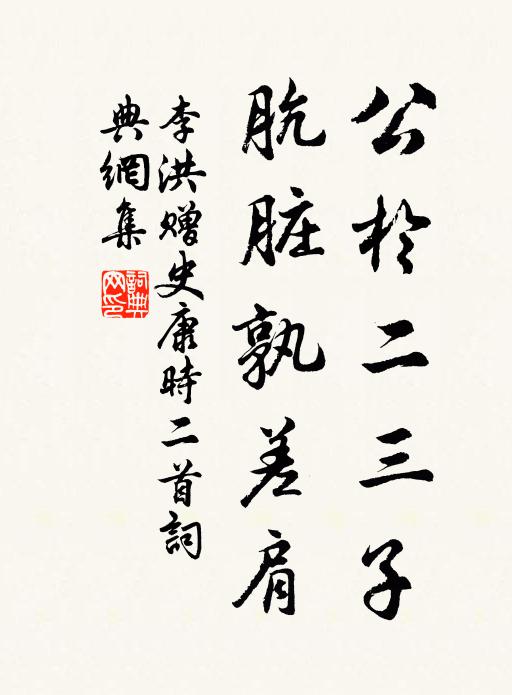 公於二三子
肮脏孰差肩
李洪赠史康時二首詞
典網集
詞典网印